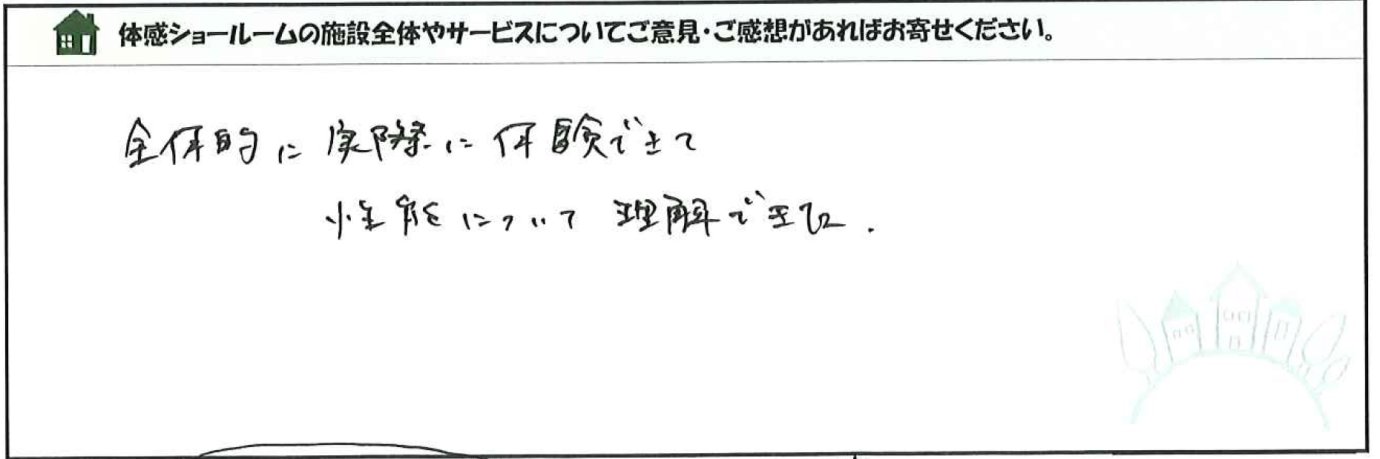 体感ショールームの施設全体やサービスについてご意見・ご感想があればお寄せください。
全体的に実際に体験できて
性能について理解できた.